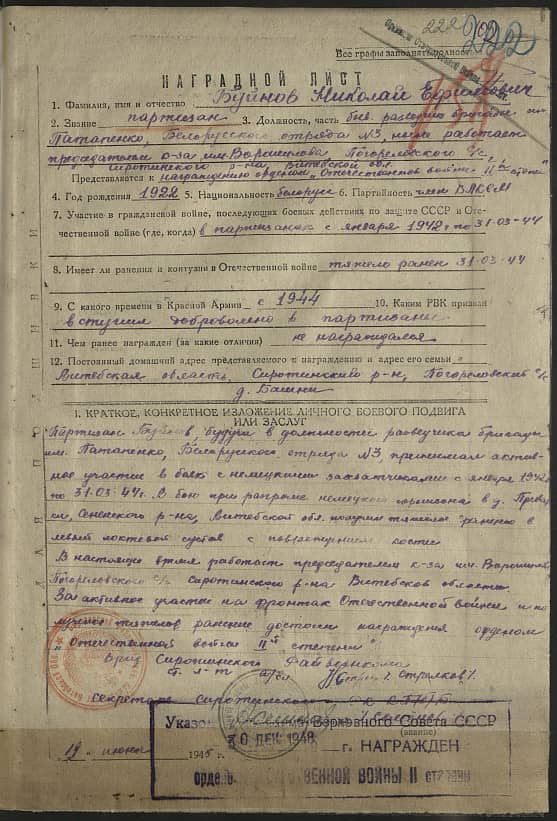 222
222
Все графы заполнять полностью
НАГРАДНОЙ ЛИСТ
1. Фамилия, имя и отчество Буйнов Николай Ефимович
2. Звание партизан 3. Должность, часть быв. разведчик бригады им.
Патапенко, Белорусского отряда №3, ныне работает
председателем к-за им. Ворошилова Погореловского с/с,
Сиротинского р-на, Витебской обл.
Представляется к награждению орденом "Отечественной войны II й степени"
4. Год рождения 1922 5. Национальность белорус 6. Партийность член ВЛКСМ
7. Участие в гражданской войне, последующих боевых действиях по защите СССР и Оте-
чественной войне (где, когда) в партизанах с января 1942 г по 31-03-44
8. Имеет ли ранения и контузии в Отечественной войне тяжело ранен 31-03-44
9. С какого времени в Красной Армии с 1944 10. Каким РВК призван
вступил доброволено в партизаны
11. Чем ранее награжден (за какие отличия) не награждался
12. Постоянный домашний адрес представляемого к награждению и адрес его семьи
Витебская область, Сиротинский р-н, Погореловский с/с
д. Башни
I. КРАТКОЕ, КОНКРЕТНОЕ ИЗЛОЖЕНИЕ ЛИЧНОГО БОЕВОГО ПОДВИГА
ИЛИ ЗАСЛУГ
Партизан Буйнов, будучи в должности разведчика бригады
им. Патапенко, Белорусского отряда №3, принимал актив-
ное участие в боях с немецкими захватчиками с января 1942
по 31-03-44 г. В бою при разгроме немецкого гарнизона в д.
Сенненского р-на, Витебской обл. получил тяжелое ранение в
левый локтевой сустав с повреждением кости
В настоящее время работает председателем к-за им. Ворошилова
Погореловского с/с Сиротинского р-на Витебской области.
За активное участие на фронтах Отечественной войны и по-
лученое тяжелое ранение достоин награждения орденом
"Отечественной войны II й степени"
Сиротинского Райвоенкома
Секретарь Сиротинского РК
(звание)
Указом Верховного Совета СССР
30 ДЕК 1948 г. НАГРАЖДЕН
19 июня 194
орденом ОТЕЧЕСТВЕННОЙ ВОЙНЫ II степени